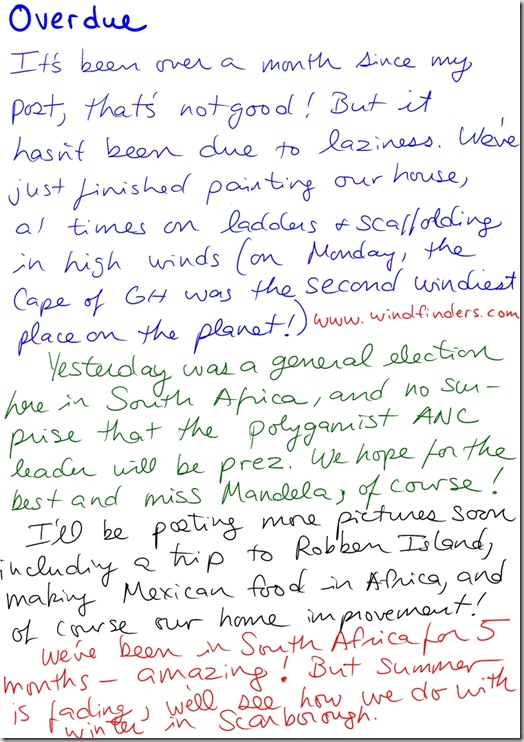 Overdue
It's been over a month since my
post, that's not good! But it
hasn't been due to laziness. We've
just finished painting our house,
at times on ladders & scaffolding
in high winds (on Monday, the
Cape of GH was the second windiest
place on the planet!) www.windfinders.com
Yesterday was a general election
here in South Africa, and no sur-
prise that the polygamist ANC
leader will be prez. We hope for the
best and miss Mandela, of course!
I'll be posting more pictures soon
including a trip to Robben Island,
making Mexican food in Africa, and
of course our home improvement!
We've been in South Africa for 5
months - amazing! But summer
is fading, we'll see how we do with
winter in Scarborough.